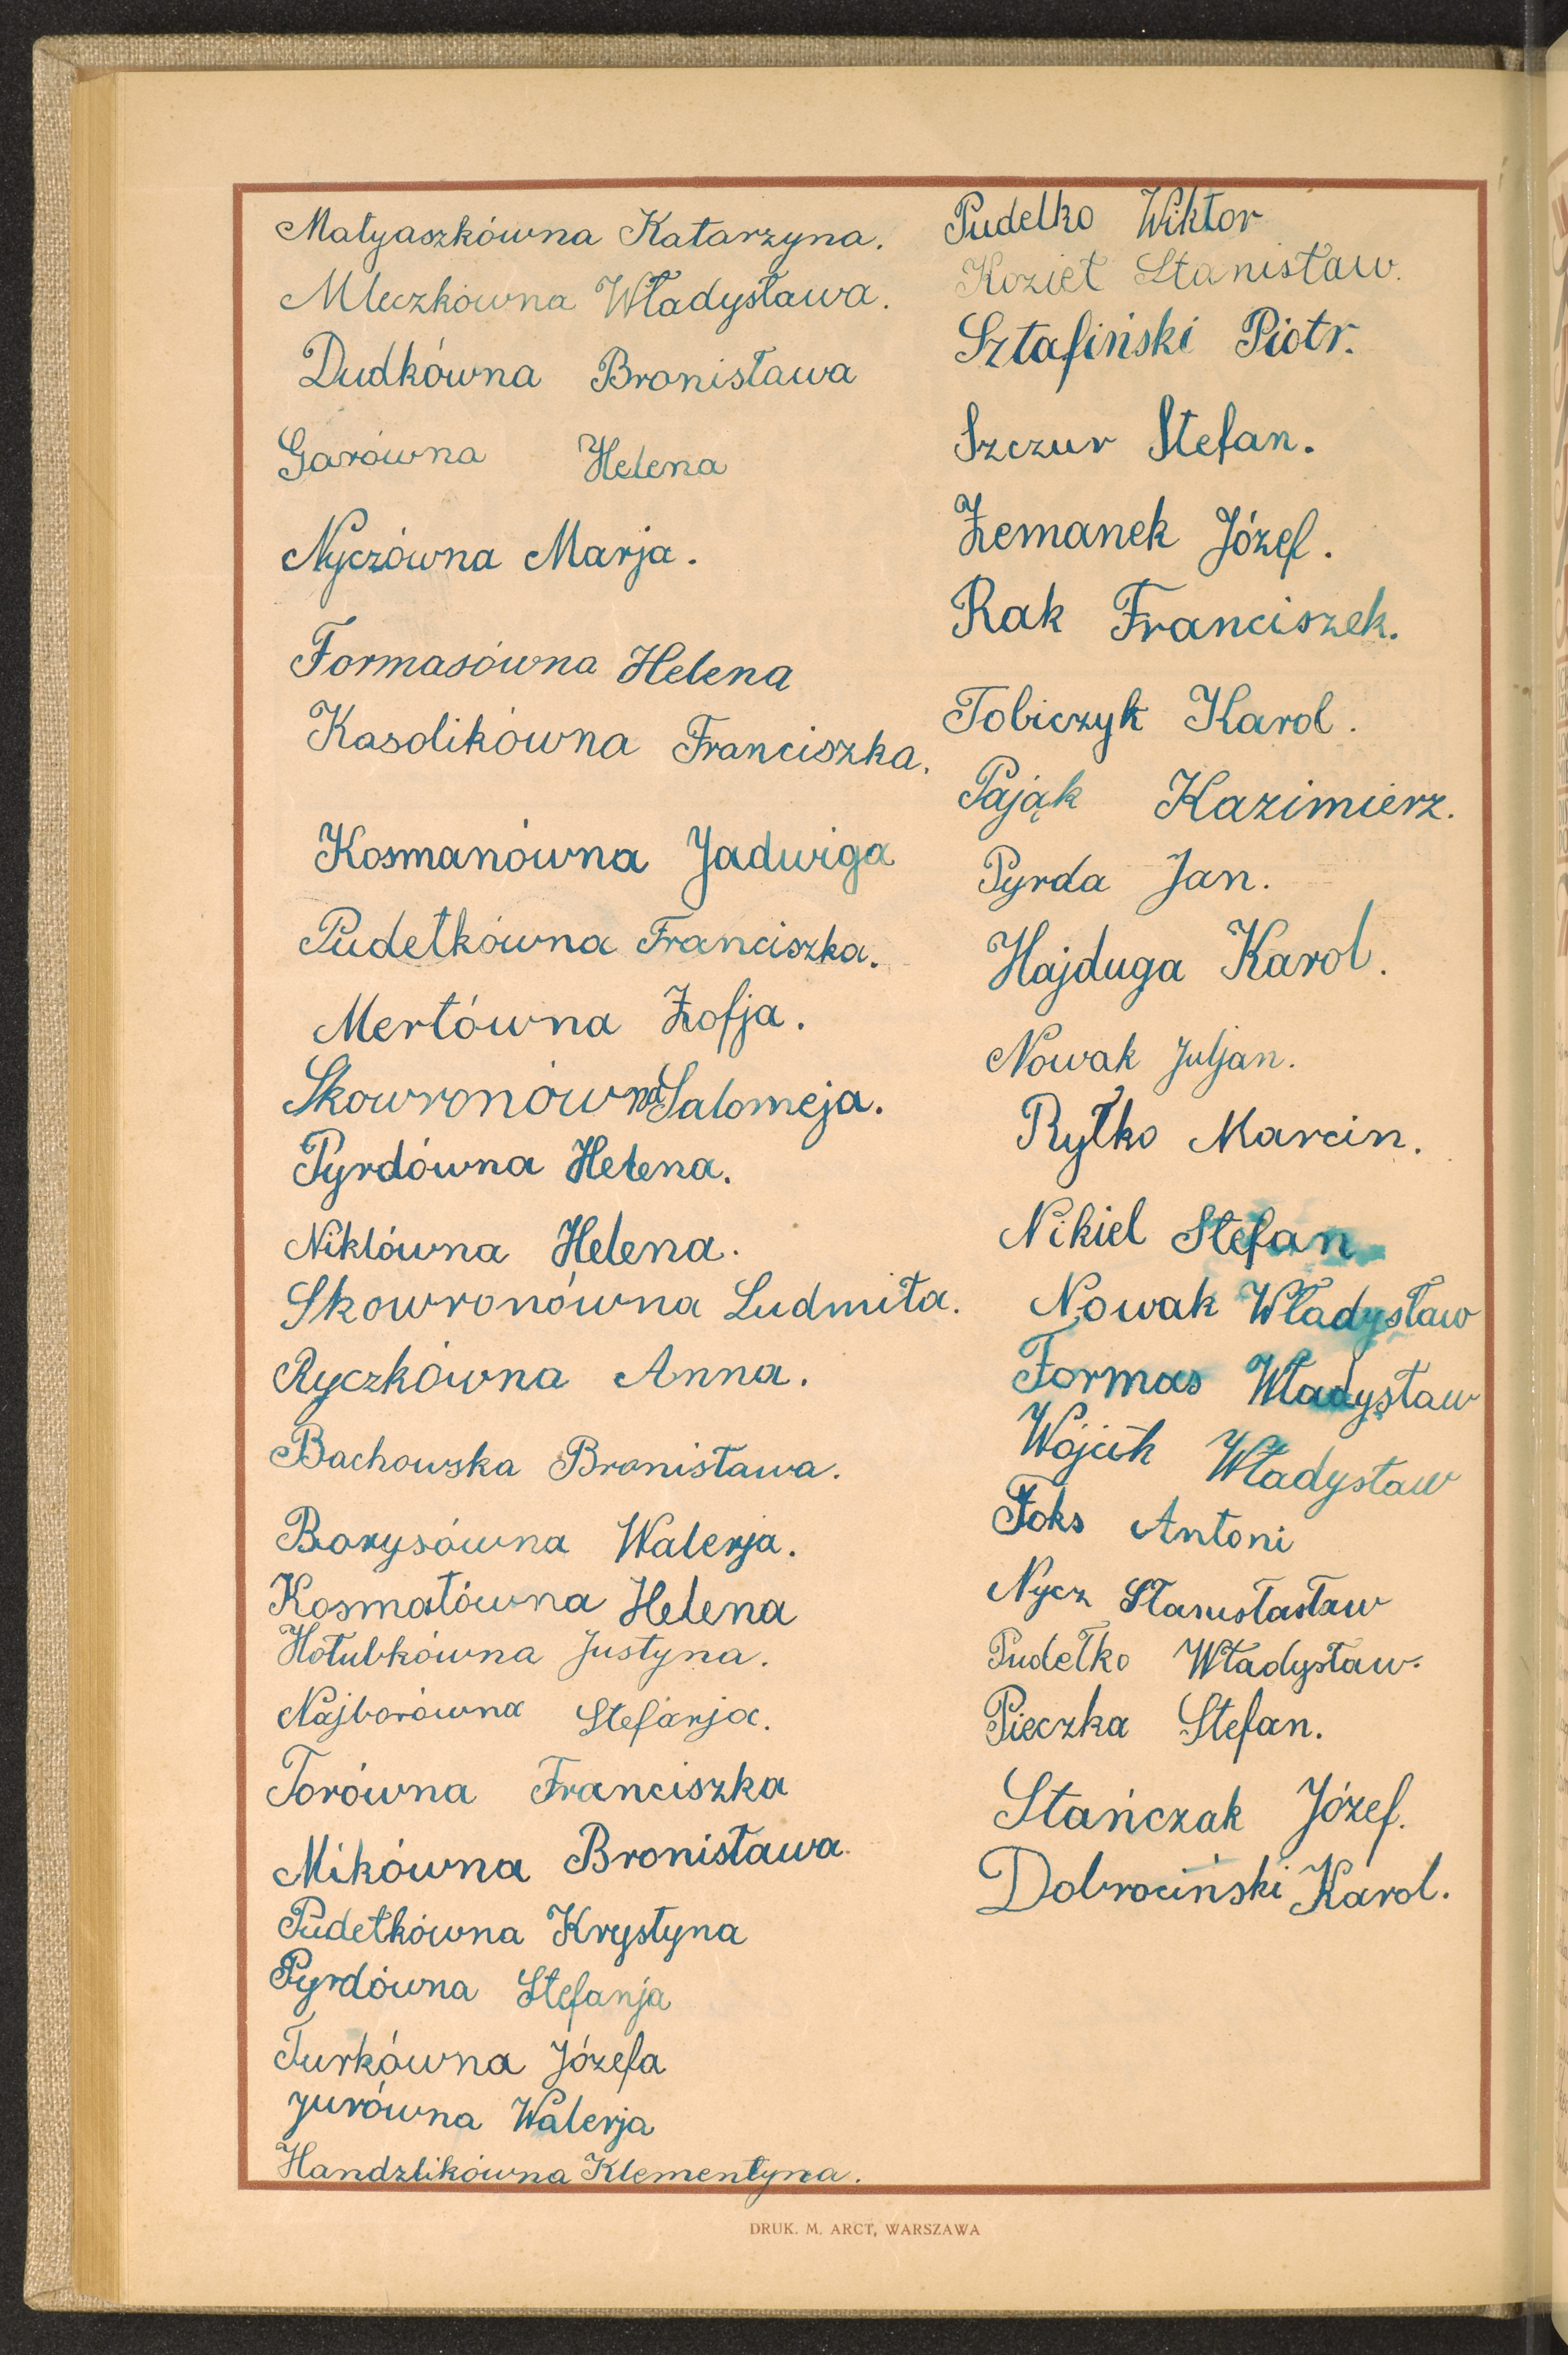 Matyaszkówna Katarzyna.
Mleczkówna Władysława.
Dudkówna Bronisława
Garówna Helena
Nyczówna Marja.
Formasówna Helena
Kasolikówna Franciszka.
Kosmanówna Jadwiga
Pudełkówna Franciszka.
Mertówna Zofja.
Skowronówna Salomeja.
Pyrdówna Helena.
Niklówna Helena.
Skowronówna Ludmiła.
Ryczkówna Anna.
Bachowska Bronisława.
Borysówna Walerja.
Kosmatówna Helena
Hołubkówna Justyna.
Najborówna Stefanja.
Torówna Franciszka
Mikówna Bronisława.
Pudełkówna Krystyna
Pyrdówna Stefanja
Turkówna Józefa
Jurówna Walerja
Handzlikówna Klementyna.
Pudełko Wiktor
Kozieł Stanisław.
Sztafiński Piotr.
Szczur Stefan.
Zemanek Józef.
Rak Franciszek.
Tobiczyk Karol.
Pająk Kazimierz.
Pyrda Jan.
Hajduga Karol.
Nowak Juljan.
Ryłko Marcin.
Nikiel Stefan
Nowak Władysław
Formas Władysław
Wójcik Władysław
Foks Antoni
Nycz Stanisłasław
Pudełko Władysław.
Pieczka Stefan.
Stańczak Józef.
Dobrociński Karol.
DRUK. M. ARCT, WARSZAWA